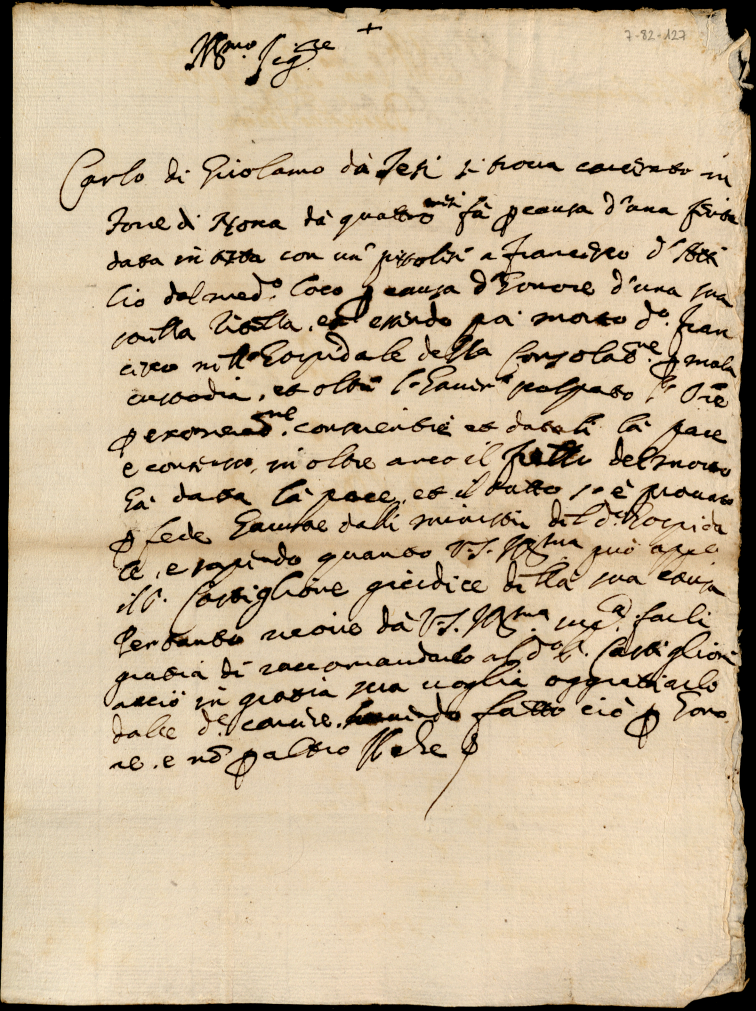 +
7-82-127
Ill.mo Sig.re
Carlo di Girolamo da Jesi si trova carcerato in
Torre di Nona da quattro mesi fà p causa d'una ferita
data in con un a Francesco d'
lio del med.o loco p causa d'honore d'una sua
putta Zitella, et essendo poi morto d.o Fran
cesco nell'Hospidale della Consolat.ne p mala
custodia, et oltre l'haver
p . et datoli la pace
e consenso, in oltre anco il fratello del morto
hà datta la pace, et il tutto se è provato
p fede havute dalli ministri del d.o Hospida
le, e sapendo quanto V.S. Ill.ma può appo
il S. Castiglione giudice della sua causa
Pertanto ricorre da V.S. Ill.ma farli
gratia di raccomandarlo al d.o S. Castiglioni
acciò in gratia sua voglia aggratiarlo
dalle d.e carcere, havendo fatto ciò p hono
re, e nõ p altro